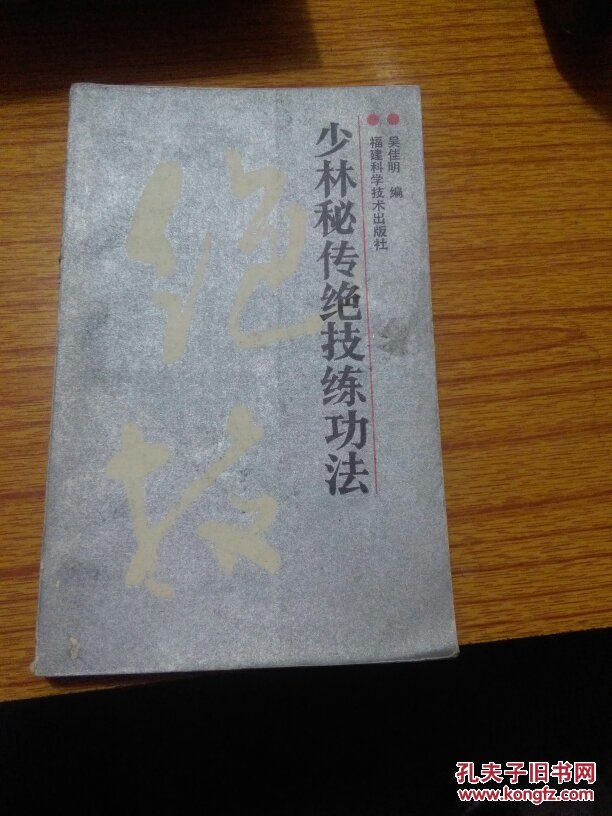 吴佳明 编
福建科学技术出版社
少林秘传绝技练功法
绝技
孔夫子旧书网
www.kongfz.com